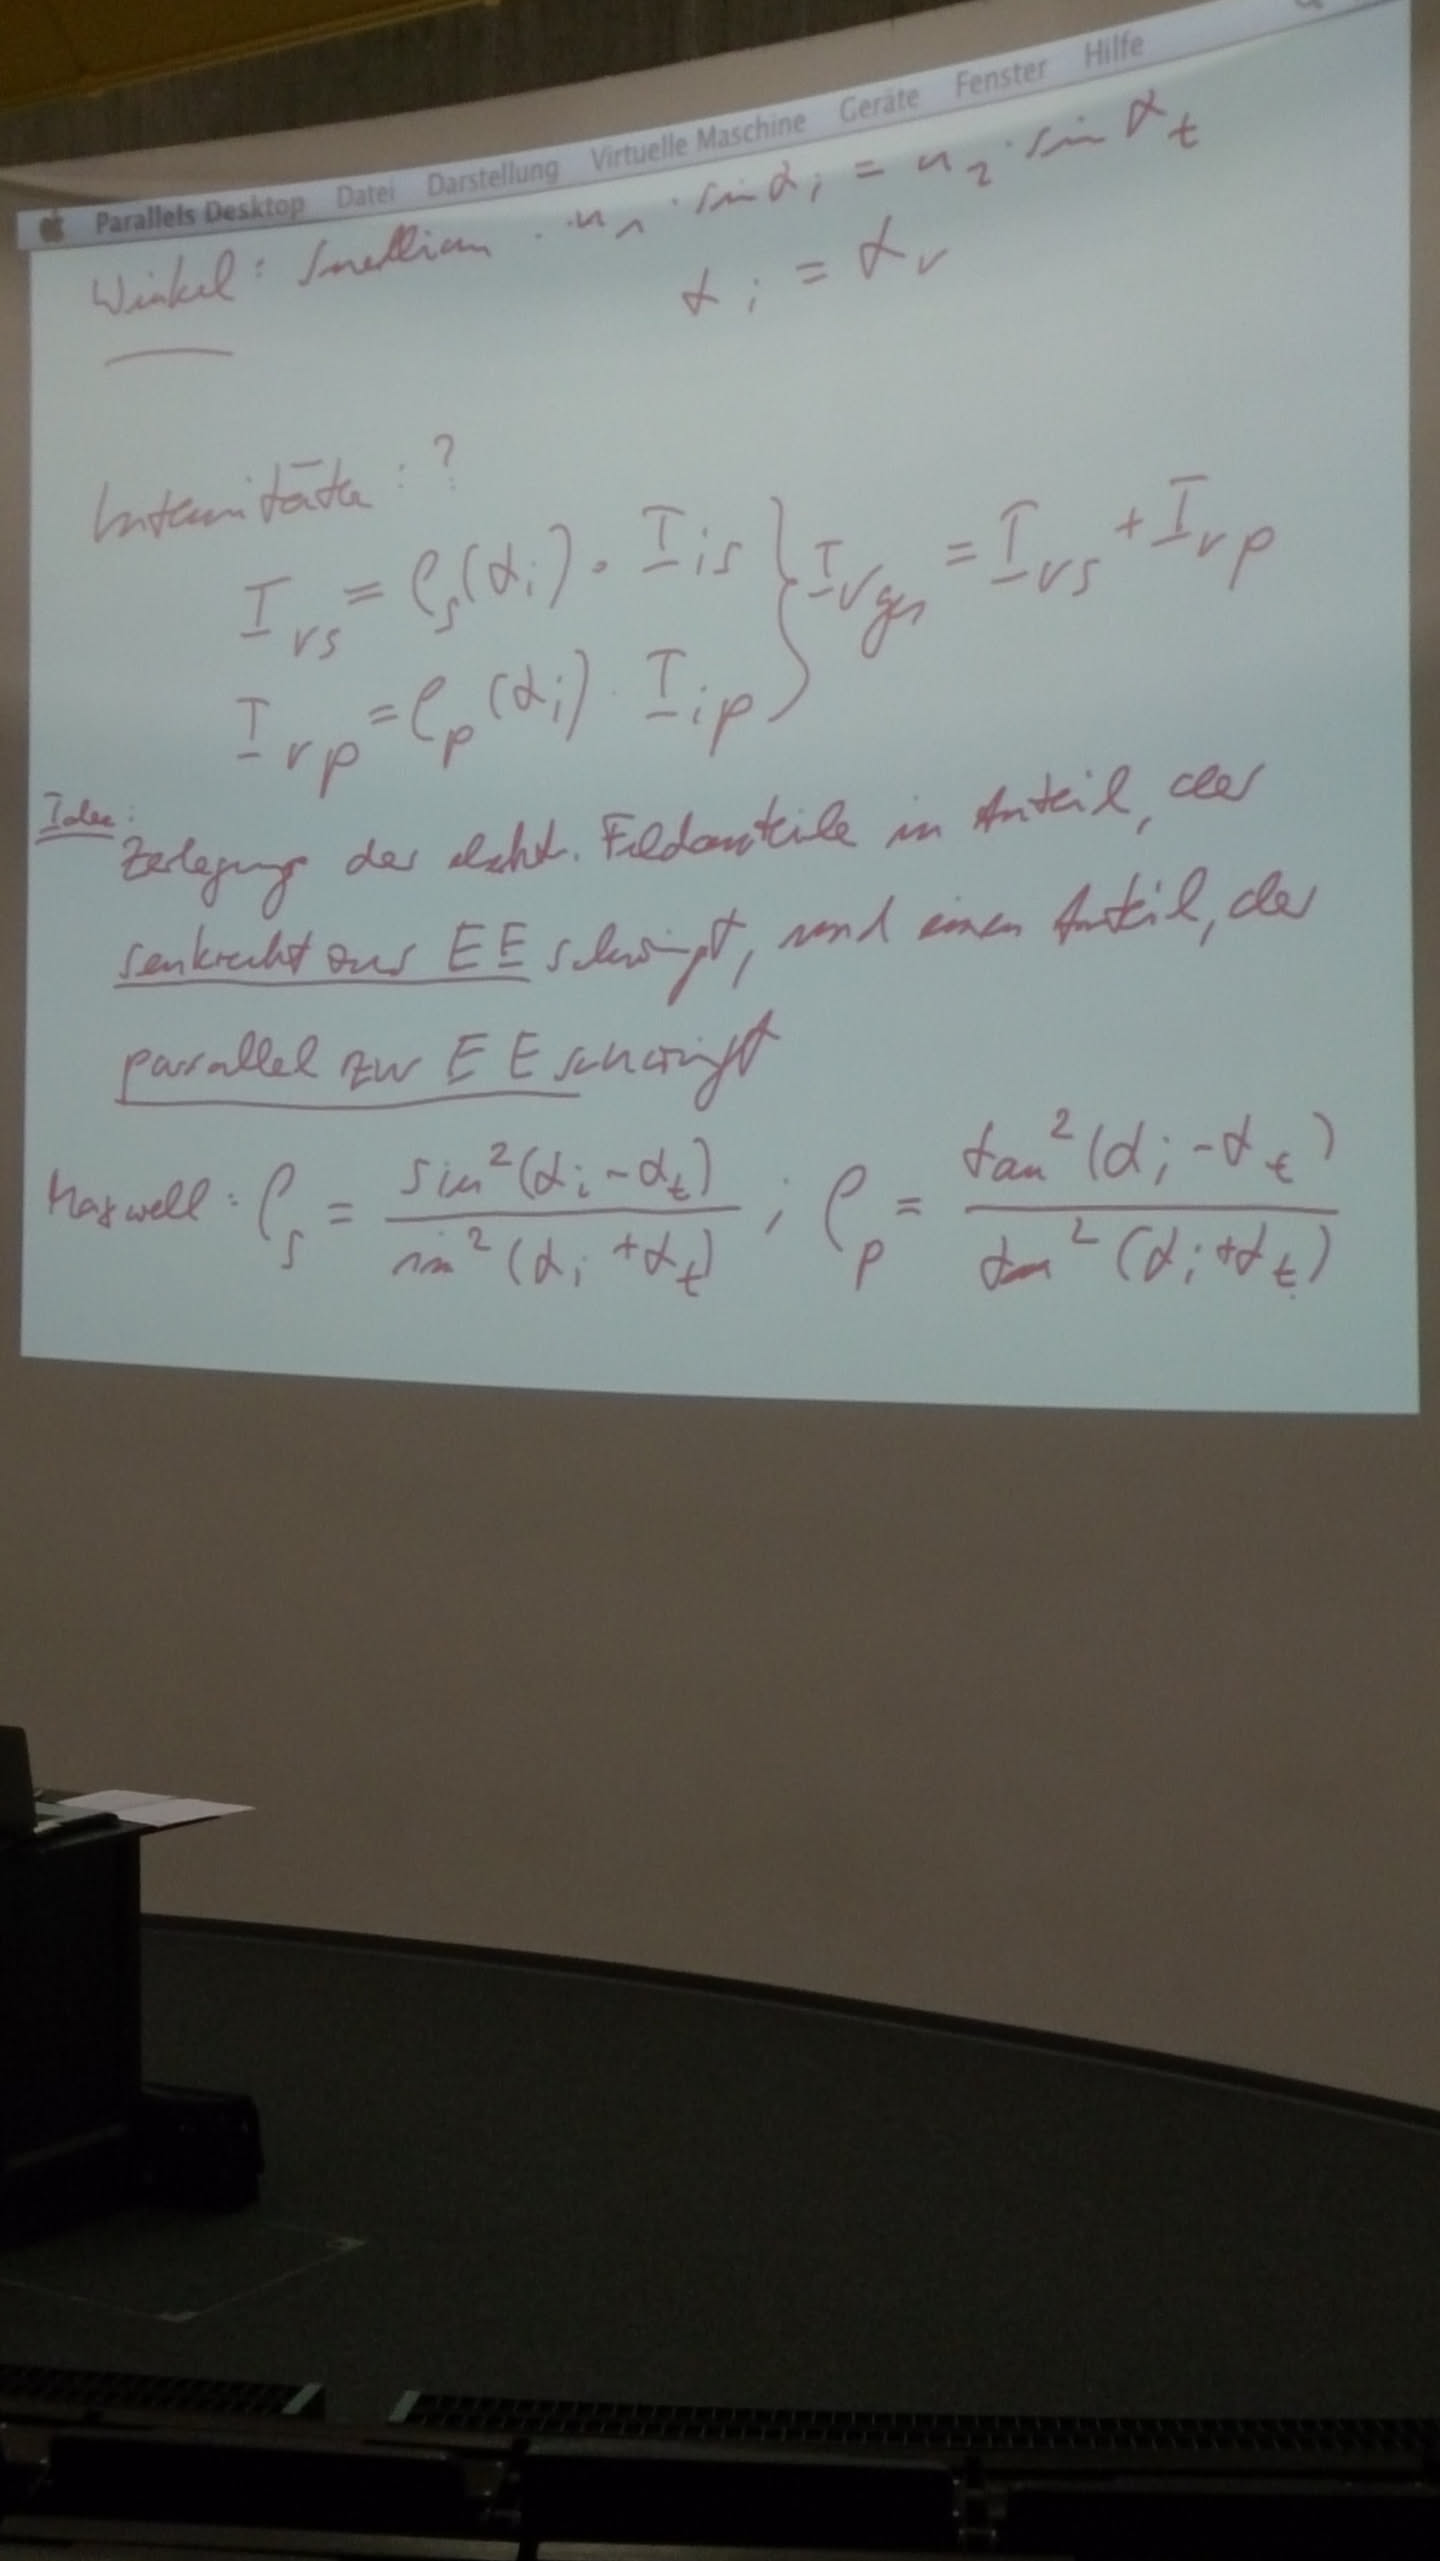 Parallels Desktop Datei Darstellung Virtuelle Maschine Geräte Fenster Hilfe
Winkel: Snellius · n₁ · sin αᵢ = n₂ · sin αₜ
αᵢ = αᵣ
Intensitäten: ?
I_rs = ρ_s(αᵢ) · I_is } I_r ges = I_rs + I_rp
I_rp = ρ_p(αᵢ) · I_ip
Idee:
Zerlegung der elekt. Feldanteile in Anteil, der
senkrecht zur EE schwingt, und einen Anteil, der
parallel zur EE schwingt
Maxwell: ρ_s = sin²(αᵢ - αₜ) / sin²(αᵢ + αₜ) ; ρ_p = tan²(αᵢ - αₜ) / tan²(αᵢ + αₜ)